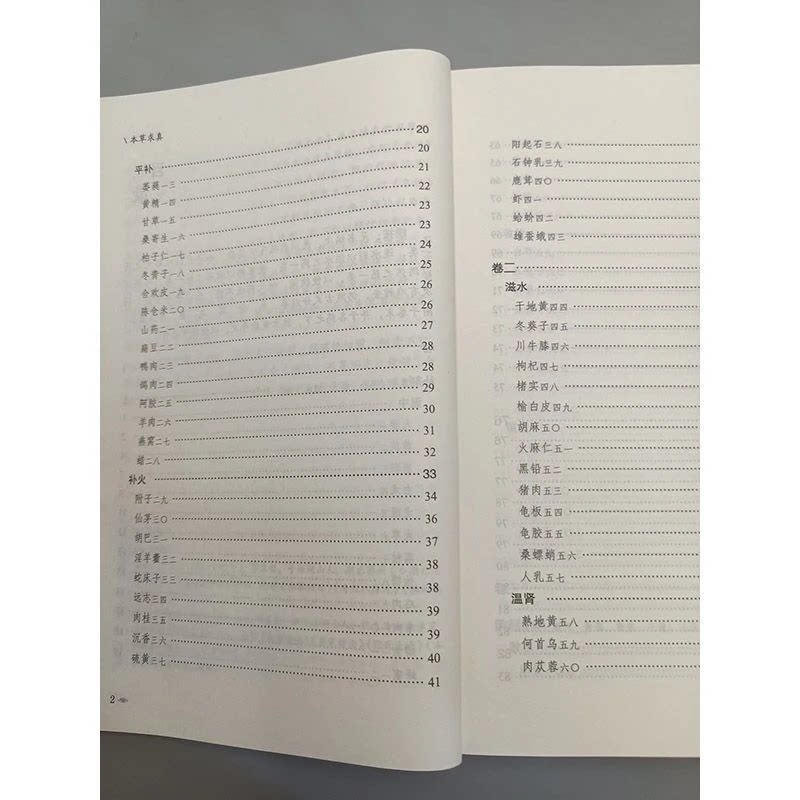 \本草求真
平补……20
萎蕤一三……20
黄精一四……21
甘草一五……22
桑寄生一六……23
柏子仁一七……23
冬青子一八……24
合欢皮一九……25
陈仓米二〇……26
山药二一……26
扁豆二二……27
鸭肉二三……28
鸽肉二四……28
阿胶二五……29
羊肉二六……30
燕窝二七……31
蜡二八……32
补火……33
附子二九……34
仙茅三〇……36
胡巴三一……37
淫羊藿三二……38
蛇床子三三……38
远志三四……39
肉桂三五……39
沉香三六……40
硫黄三七……41
2
阳起石三八……
石钟乳三九……
鹿茸四〇……
虾四一……
蛤蚧四二……
雄蚕蛾四三……
卷二……
滋水……
干地黄四四……
冬葵子四五……
川牛膝四六……
枸杞四七……
楮实四八……
榆白皮四九……
胡麻五〇……
火麻仁五一……
黑铅五二……
猪肉五三……
龟板五四……
龟胶五五……
桑螵蛸五六……
人乳五七……
温肾……
熟地黄五八……
何首乌五九……
肉苁蓉六〇……